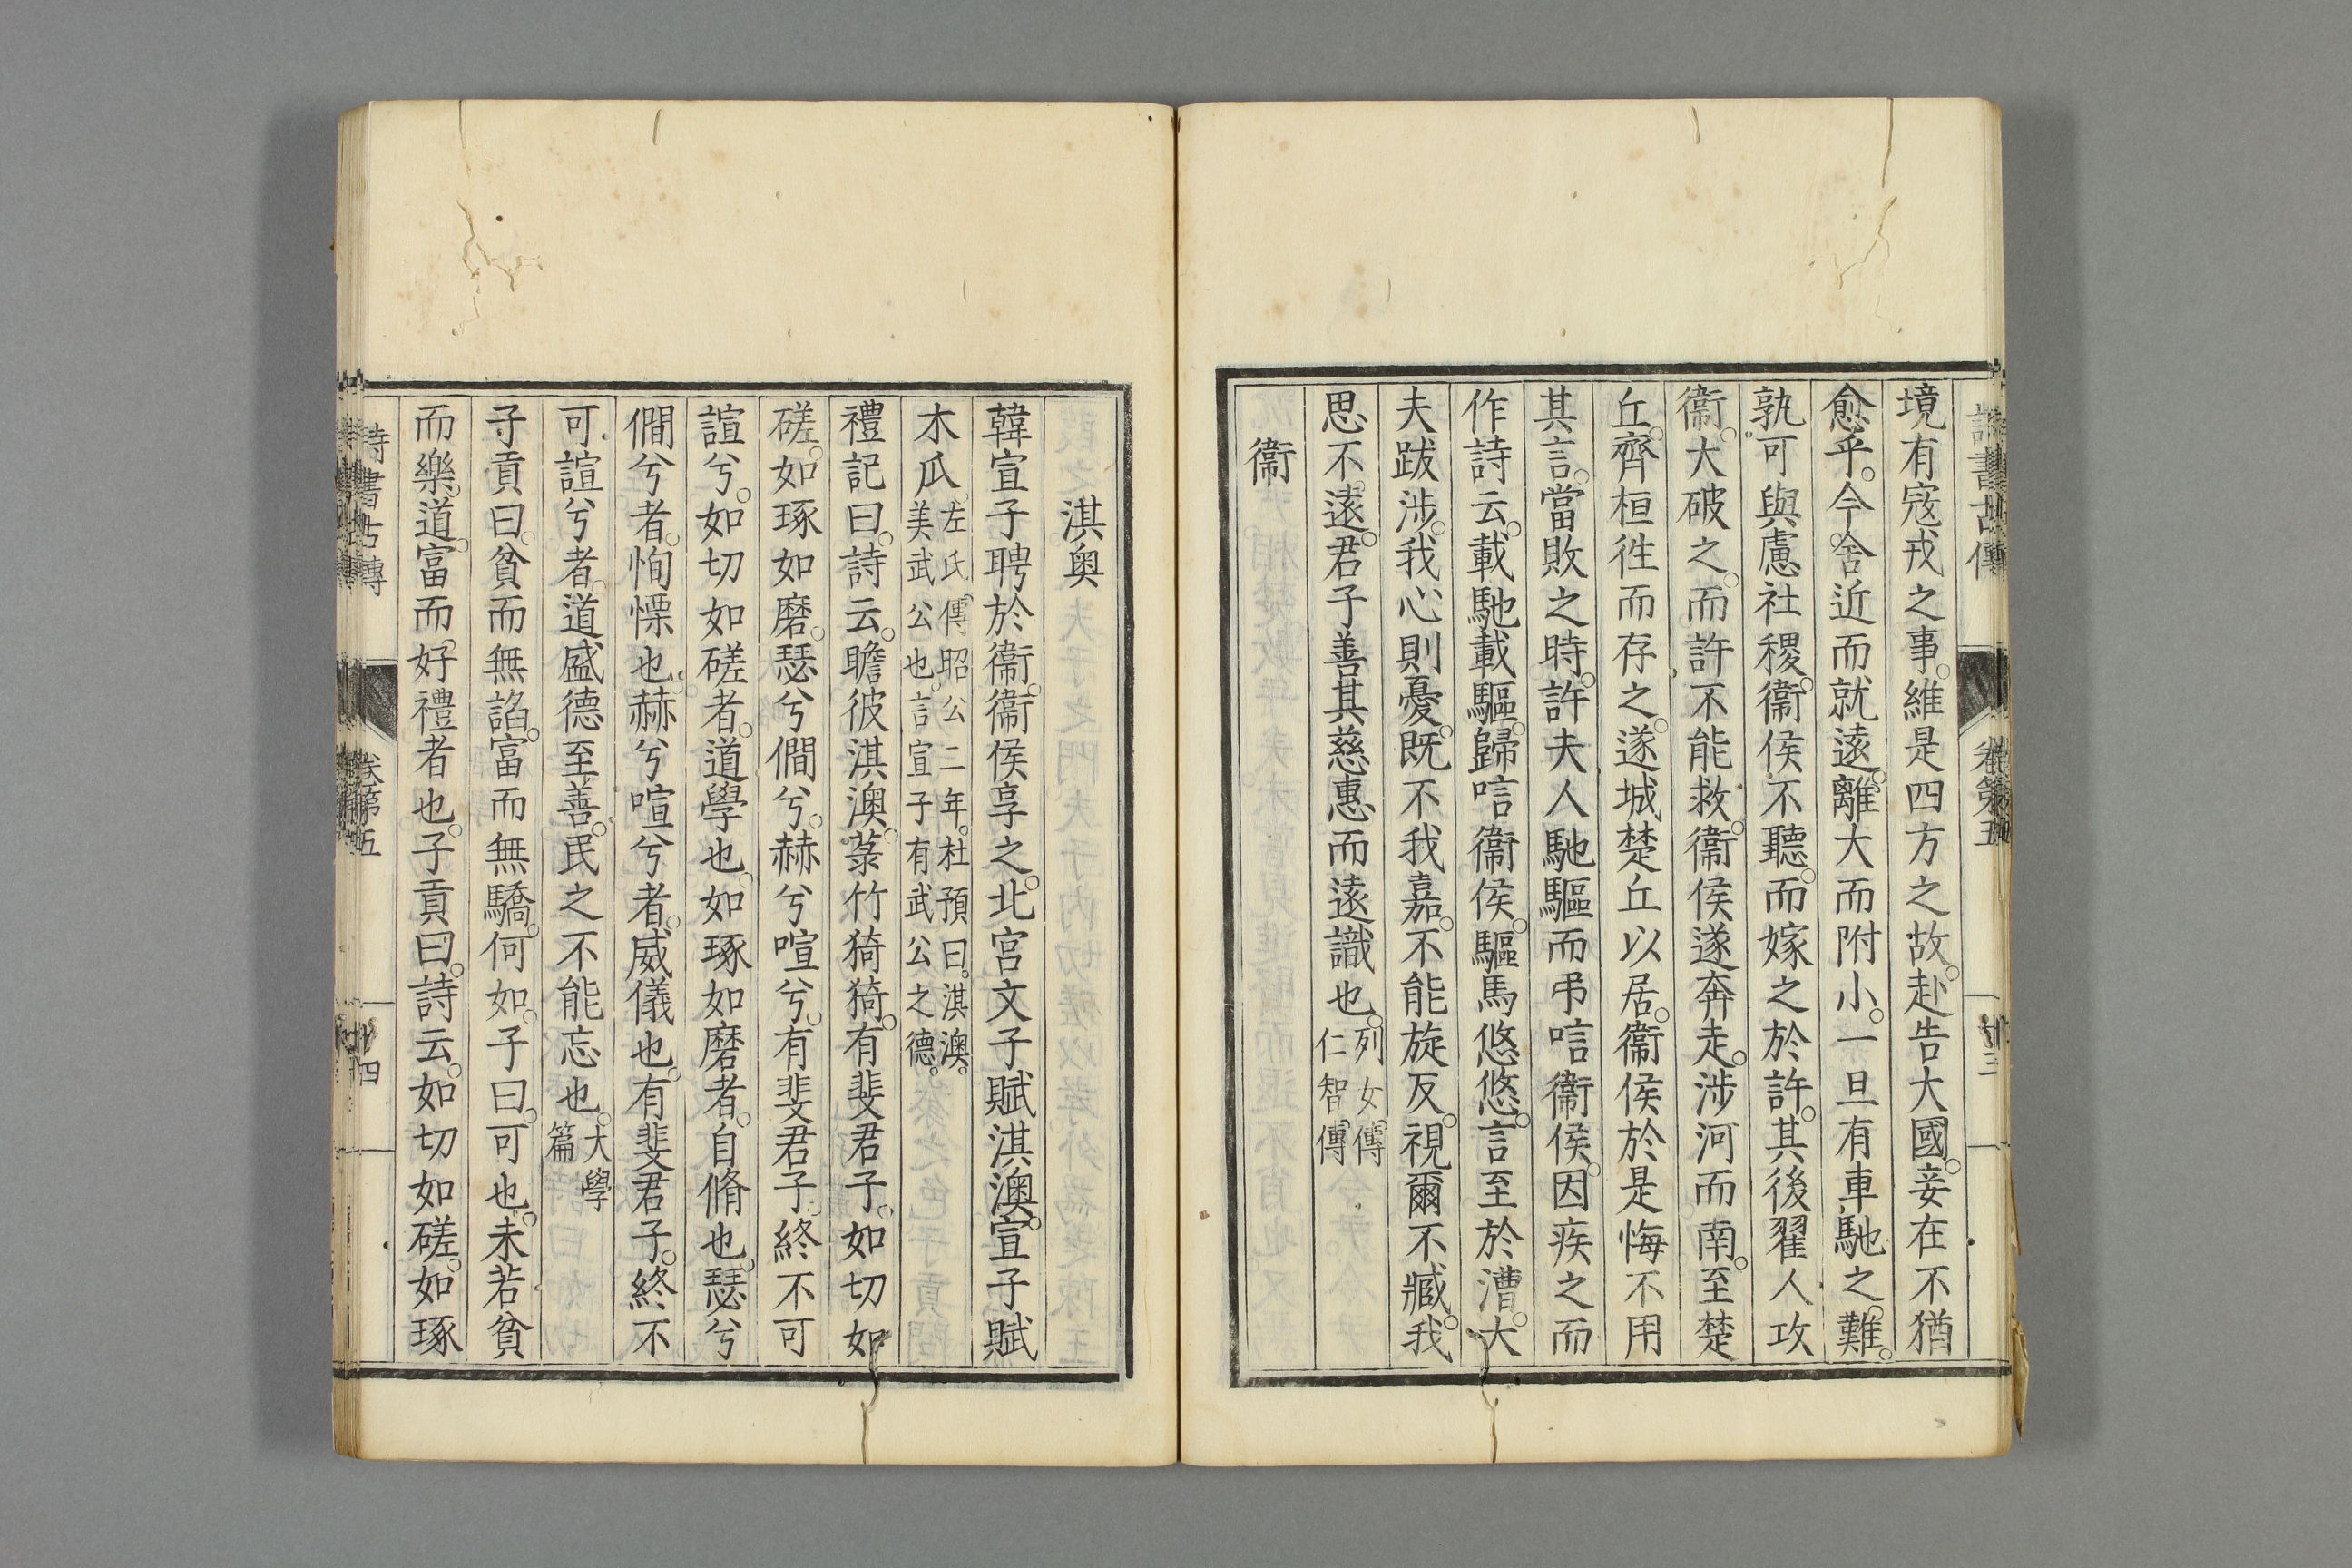 詩書古傳
卷第五
廿三
境有寇戎之事。維是四方之故。赴告大國。妾在不猶
愈乎。今舍近而就遠。離大而附小。一旦有車馳之難。
孰可與慮社稷。衞侯不聽。而嫁之於許。其後翟人攻
衞。大破之。而許不能救。衞侯遂奔走。涉河而南。至楚
丘。齊桓徃而存之。遂城楚丘以居。衞侯於是悔不用
其言。當敗之時。許夫人馳驅而弔唁衞侯。因疾之而
作詩云。載馳載驅。歸唁衞侯。驅馬悠悠。言至於漕。大
夫跋涉。我心則憂。既不我嘉。不能旋反。視爾不臧。我
思不遠。君子善其慈惠而遠識也。列女傳
仁智傳
衞
淇奧
韓宣子聘於衞。衞侯享之。北宮文子賦淇澳。宣子賦
木瓜。左氏傳昭公二年。杜預曰。淇澳。
美武公也。言宣子有武公之德。
禮記曰。詩云。瞻彼淇澳。菉竹猗猗。有斐君子。如切如
磋。如琢如磨。瑟兮僩兮。赫兮喧兮。有斐君子。終不可
諠兮。如切如磋者。道學也。如琢如磨者。自脩也。瑟兮
僩兮者。恂慄也。赫兮喧兮者。威儀也。有斐君子。終不
可諠兮者。道盛德至善。民之不能忘也。大學
篇
子貢曰。貧而無諂。富而無驕。何如。子曰。可也。未若貧
而樂道。富而好禮者也。子貢曰。詩云。如切如磋。如琢
詩書古傳
卷第五
廿四